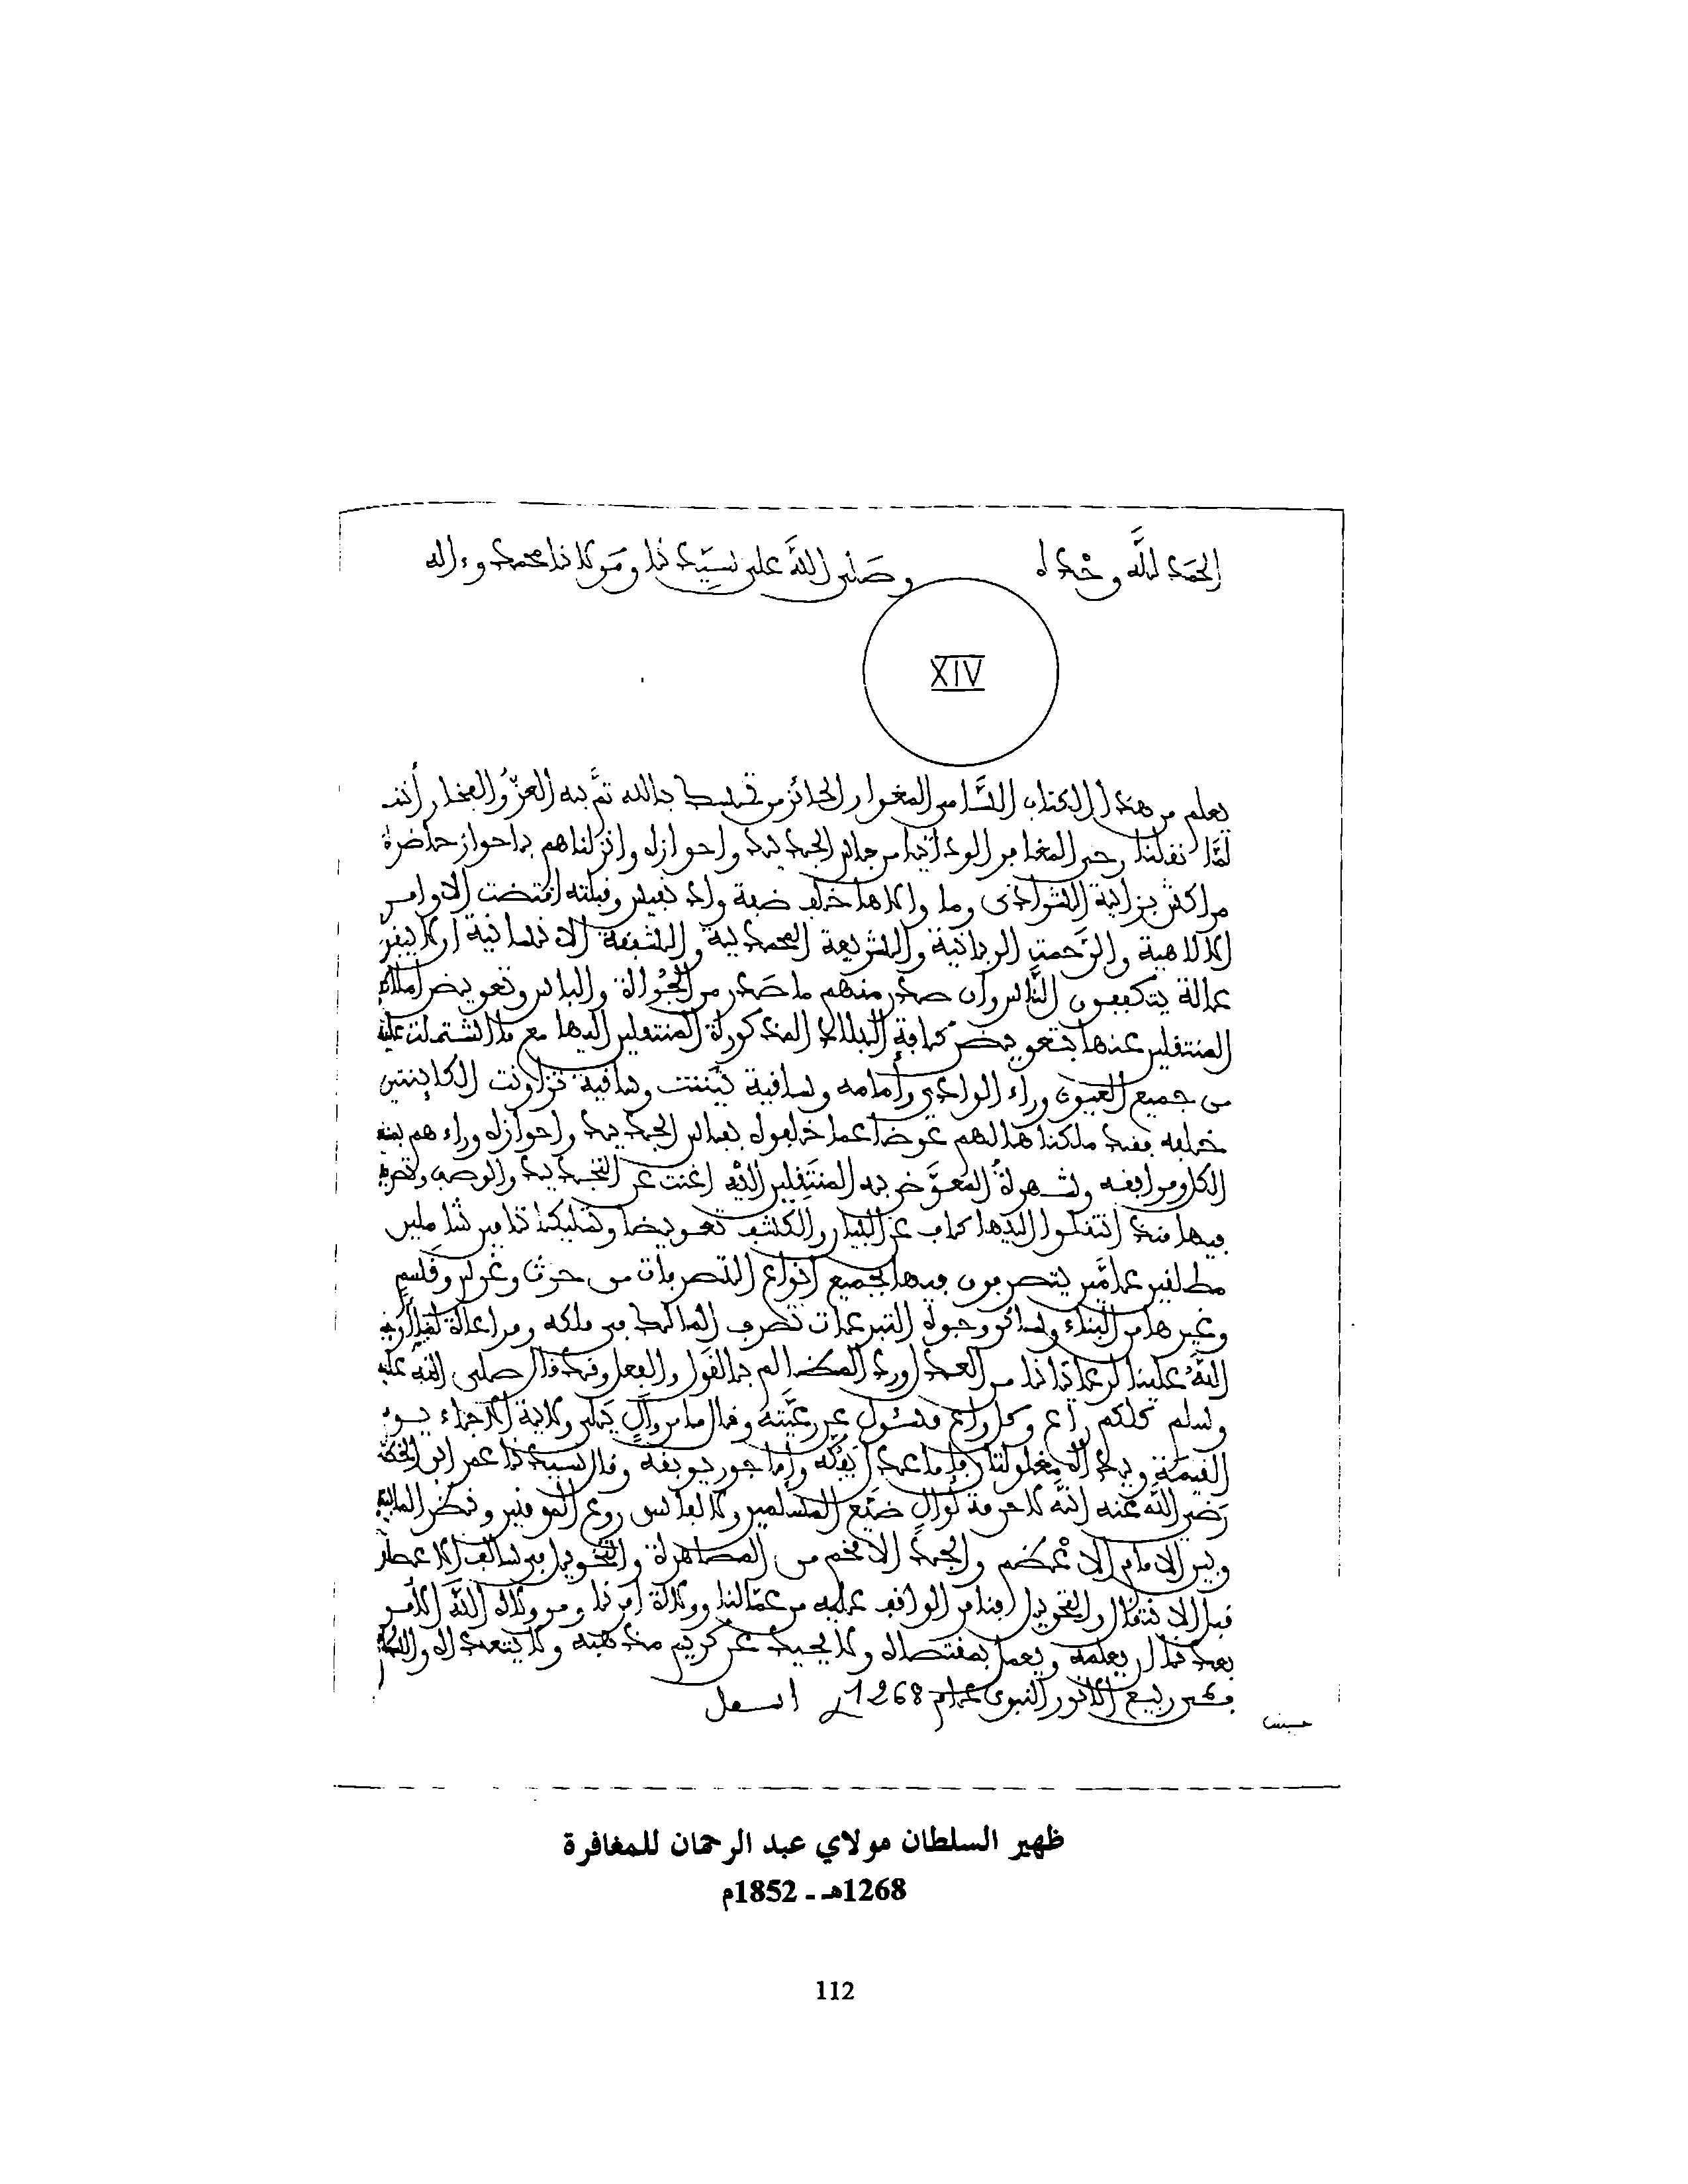 الحمد لله وحده وصلى الله على سيدنا ومولانا محمد وءاله
XIV
يعلم من هذا الكتاب السامي المغوار الحائز من تمسك بالله تم به العز والفخار أننا
لما نقلنا المغافر الودايا من فاس الجديد وأحوازه وانزلناهم بأحواز حاضرة
مراكش بزاوية الشراذي وما والاها خلف ضفة واد نفيس وقبلته اقتضت الاوامر
الالاهية والرحمت الربانية والشريعة المحمدية والشفقة الانسانية ان لا يبقى
عالة يتكففون الناس وان صدر منهم ما صدر من الجرأة والباس وتعويض أملاك
المنتقلين عنها بتعويض كافة البلاد المذكورة المنتقلين اليها مع ما اشتملت عليه
من جميع العيون وراء الوادي وأمامه وساقية تاونت الكاينتين
خلفه فقد ملكناها لهم عوضا عما خلفوه بفاس الجديد وأحوازه وراءهم
الكل وموافقه وشهرة المعوض به المنتقلين اليه اغنت عن التحديد والوصف
فيها منذ انتقلوا اليها كاف عن البيان والكشف تعويضا وتمليكا تامين شاملين
مطلقين عامين يتصرفون فيها بجميع أنواع التصرفات من حرث وغرس وقسم
وغيرها من البناء وسائر وجوه التبرعات تصرف المالك في ملكه ومراعاة
الله علينا لرعايانا من العدل ورد المظالم بالقول والفعل وقد قال صلى الله عليه
وسلم كلكم راع وكل راع مسئول عن رعيته وقال ما من وال يلي ولاية الا جاء يوم
القيمة ويده مغلولتان فإما عدل يفكه وإما جور يوبقه وقال سيدنا عمر ابن الخطاب
رضي الله عنه انه لا حرمة لوال ضيع المسلمين ولا لفاسق روع المومنين
وبين الامام الاعظم والجد الافخم من المصاهرة والتخويل في سالف الاعصار
قبل الانتقال والتخويل فنامر الواقف عليه من عمالنا وولاة أمرنا ومن ولاه الله الأمر
بعدنا ان يعلمه ويعمل بمقتضاه ولا يحيد عن كريم مذهبه ولا يتعداه والسلام
في ربيع الانور النبوي عام 1268
ظهير السلطان مولاي عبد الرحمان للمغافرة
1268هـ - 1852م
112